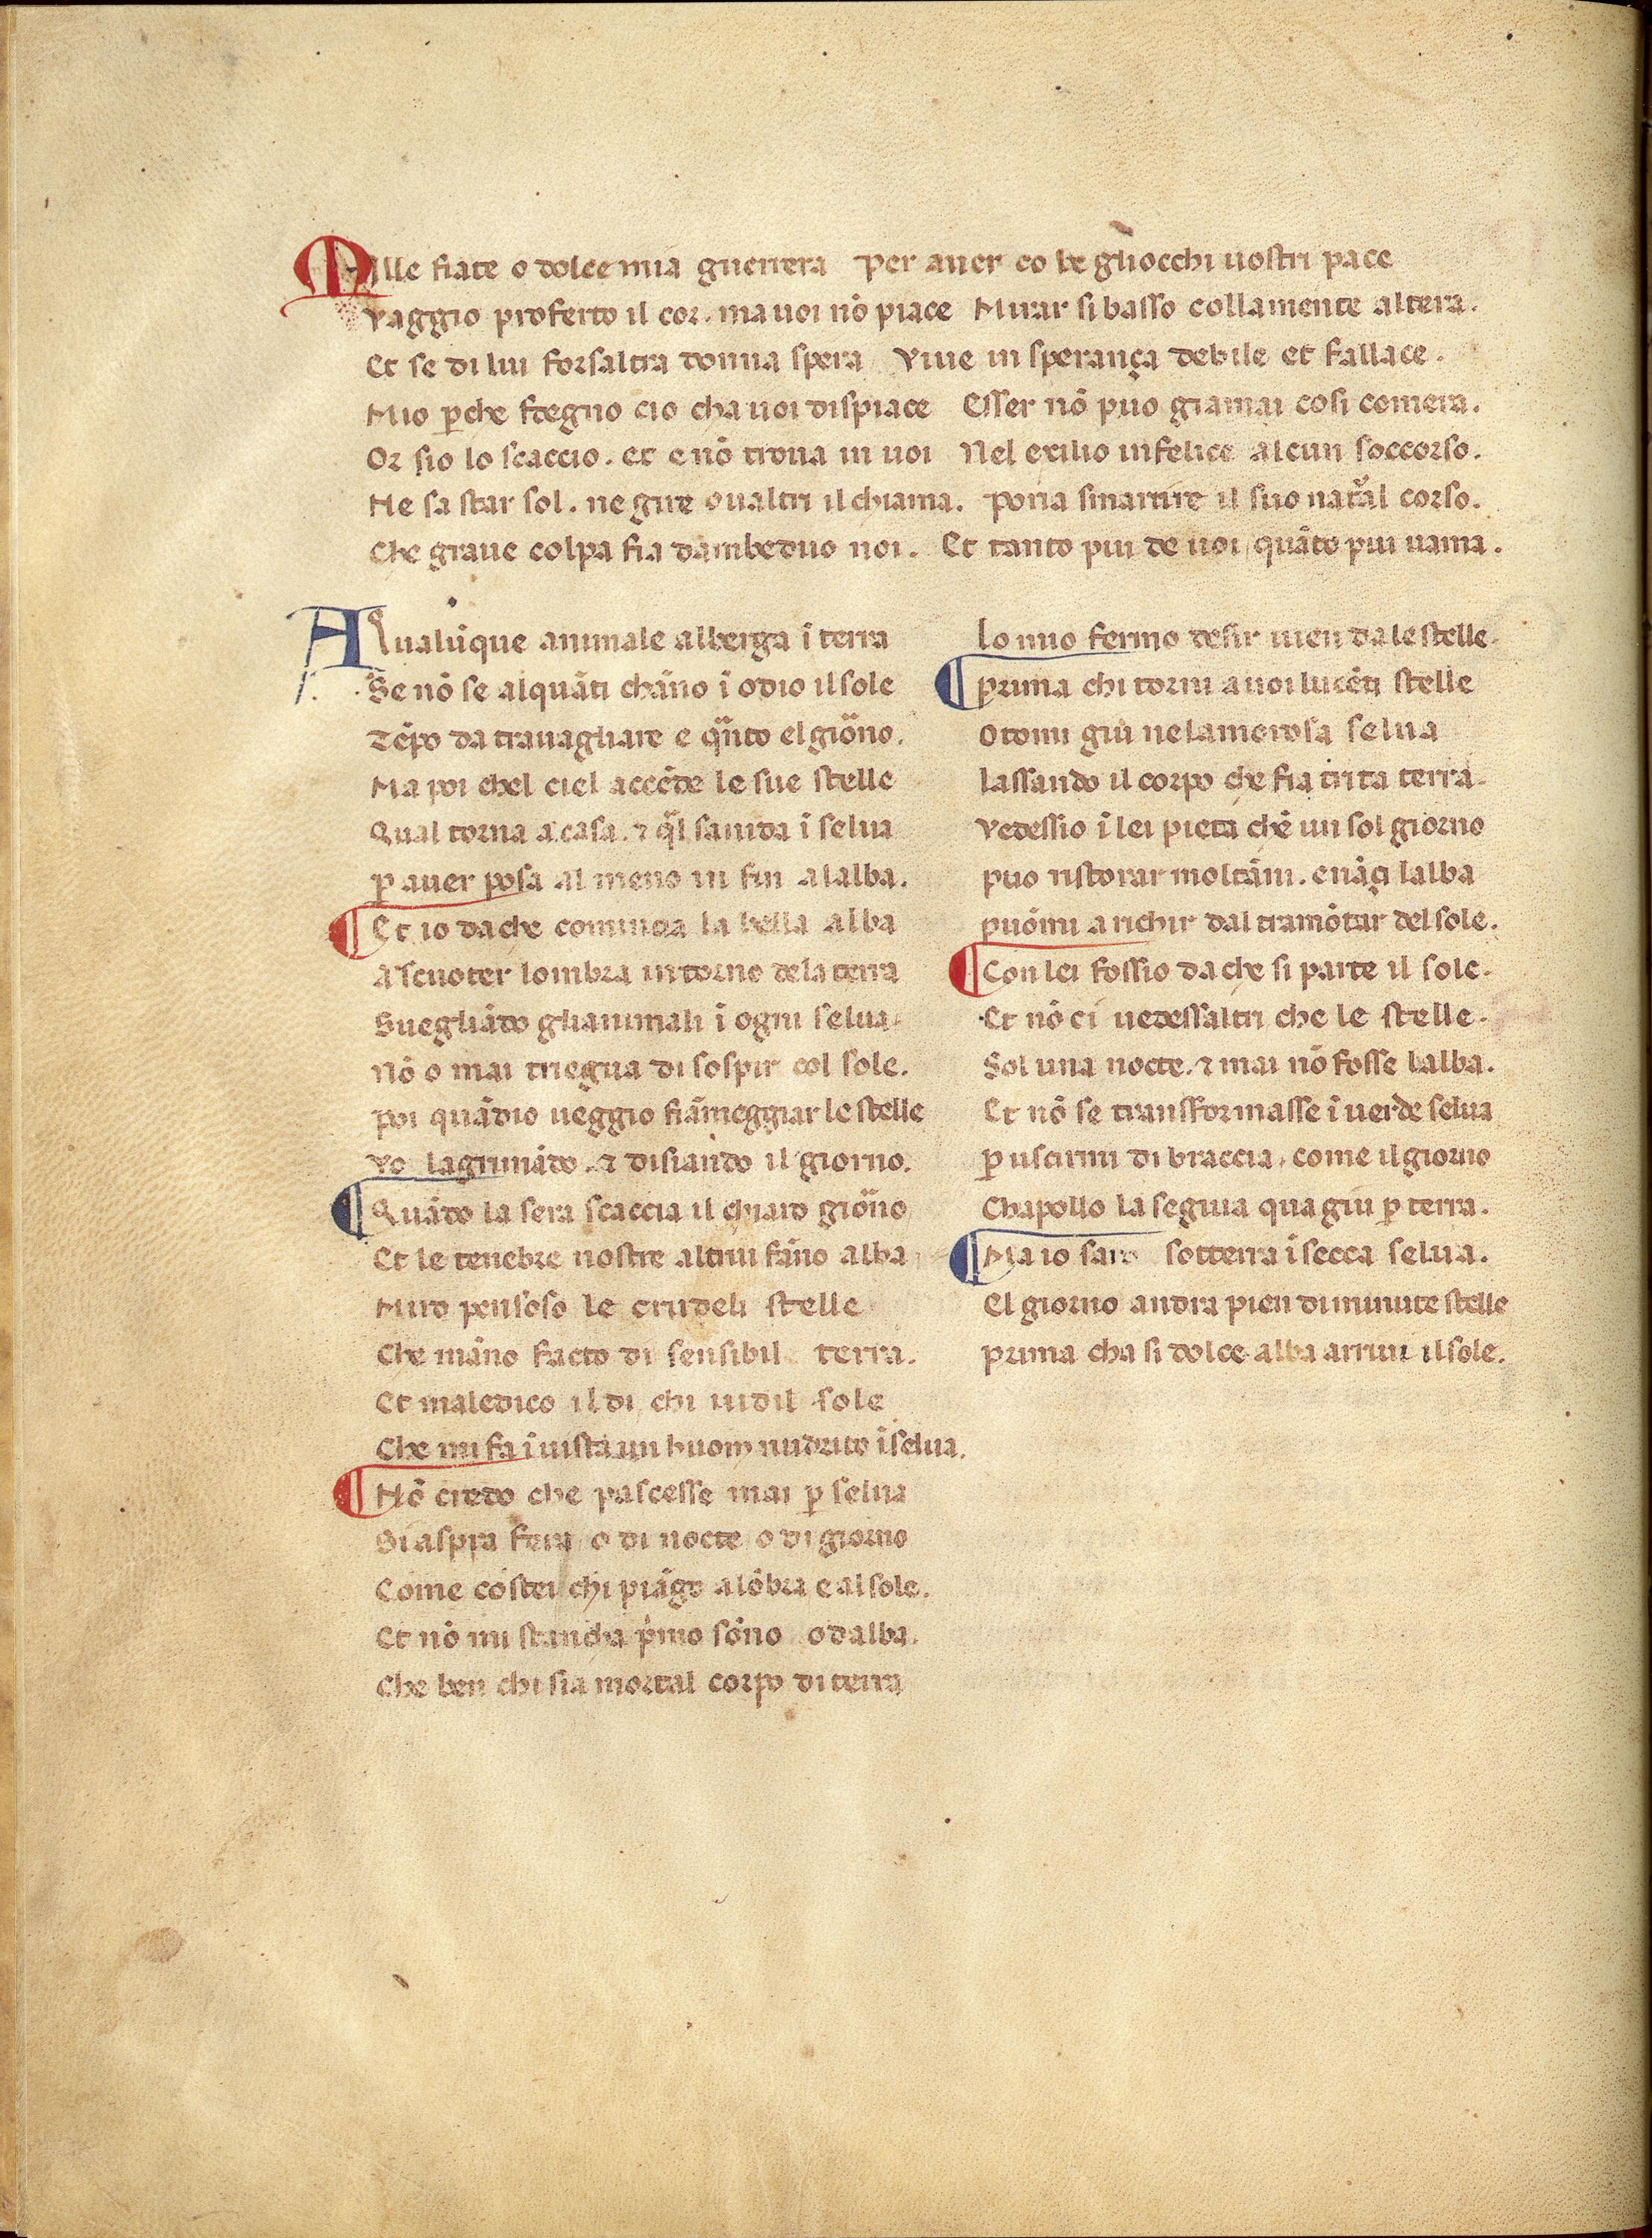 Mille fiate o dolce mia guerrera per auer cō be gliocchi uostri pace
Vaggio proferto il cor. ma uoi nō piace Mirar si basso colla mente altera.
Et se di lui forsaltra donna spera Viue in sperança debile et fallace.
Mio ꝑche sdegno cio cha uoi dispiace Esser nō puo giamai cosi comera.
Or sio lo scaccio. et e nō troua in uoi Nel exilio infelice alcun soccorso.
Ne sa star sol. ne gire oualtri il chiama. poria smarrire il suo natural corso.
Che graue colpa fia dambeduo noi. Et tanto piu de uoi quāto piu uama.
A Qualūque animale alberga ī terra
Se nō se alquāti chāno ī odio il sole
Tēpo da trauagliare e qnto el giorno.
Ma poi chel ciel accēde le sue stelle
Qual torna a casa. ⁊ ql sanida ī selua
ꝑ auer posa al meno in fin alalba.
Et io da che comincia la bella alba
A scuoter lombra intorno de la terra
Suegliādo glianimali ī ogni selua.
nō o mai triegua di sospir col sole.
poi quādio ueggio fiāmeggiar le stelle
Vo lagrimādo. ⁊ disiando il giorno.
Quādo la sera scaccia il chiaro giorno
Et le tenebre nostre altrui fāno alba
Miro pensoso le crudeli stelle
Che māno facto di sensibil terra.
Et maledico il di chi uidil sole
Che mi fa ī uista un huom nudrito ī selua.
Nō credo che pascesse mai ꝑ selua
Si aspra fera o di nocte o di giorno
Come costei chi piāgo a lōbra e al sole.
Et nō mi stancha pimo sōno od alba.
Che ben chi sia mortal corpo di terra
lo mio fermo desir uien da le stelle.
prima chi torni a uoi lucēti stelle
O tomi giu nelamorosa selua
lassando il corpo che fia trita terra.
Vedessio ī lei pieta chē un sol giorno
puo ristorar moltāni. enāçi lalba
puōmi arichir dal tramōtar del sole.
Con lei fossio da che si parte il sole.
Et nō ci uedessaltri che le stelle.
Sol una nocte. ⁊ mai nō fosse lalba.
Et nō se transformasse ī uerde selua
ꝑ uscirmi di braccia. come il giorno
Chapollo la seguia qua giu ꝑ terra.
Ma io saro sotterra ī secca selua.
El giorno andra pien di minute stelle
prima cha si dolce alba arriui il sole.